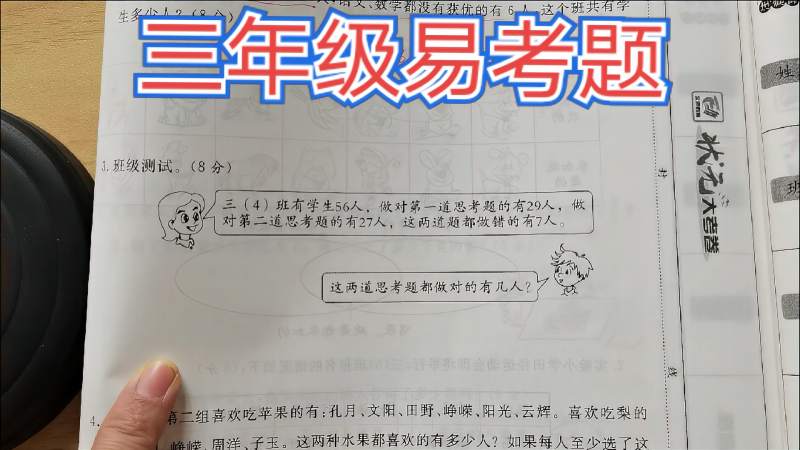 语文、数学都没有获优的有6人，这个班共有学
生多少人？(8分)
三年级易考题
3.班级测试。(8分)
三（4）班有学生56人，做对第一道思考题的有29人，做
对第二道思考题的有27人，这两道题都做错的有7人。
这两道思考题都做对的有几人？
4.
第二组喜欢吃苹果的有:孔月、文阳、田野、峥嵘、阳光、云辉。喜欢吃梨的
峥嵘、周洋、子玉。这两种水果都喜欢的有多少人？如果每人至少选了这
状元大考卷
姓
班
封
线